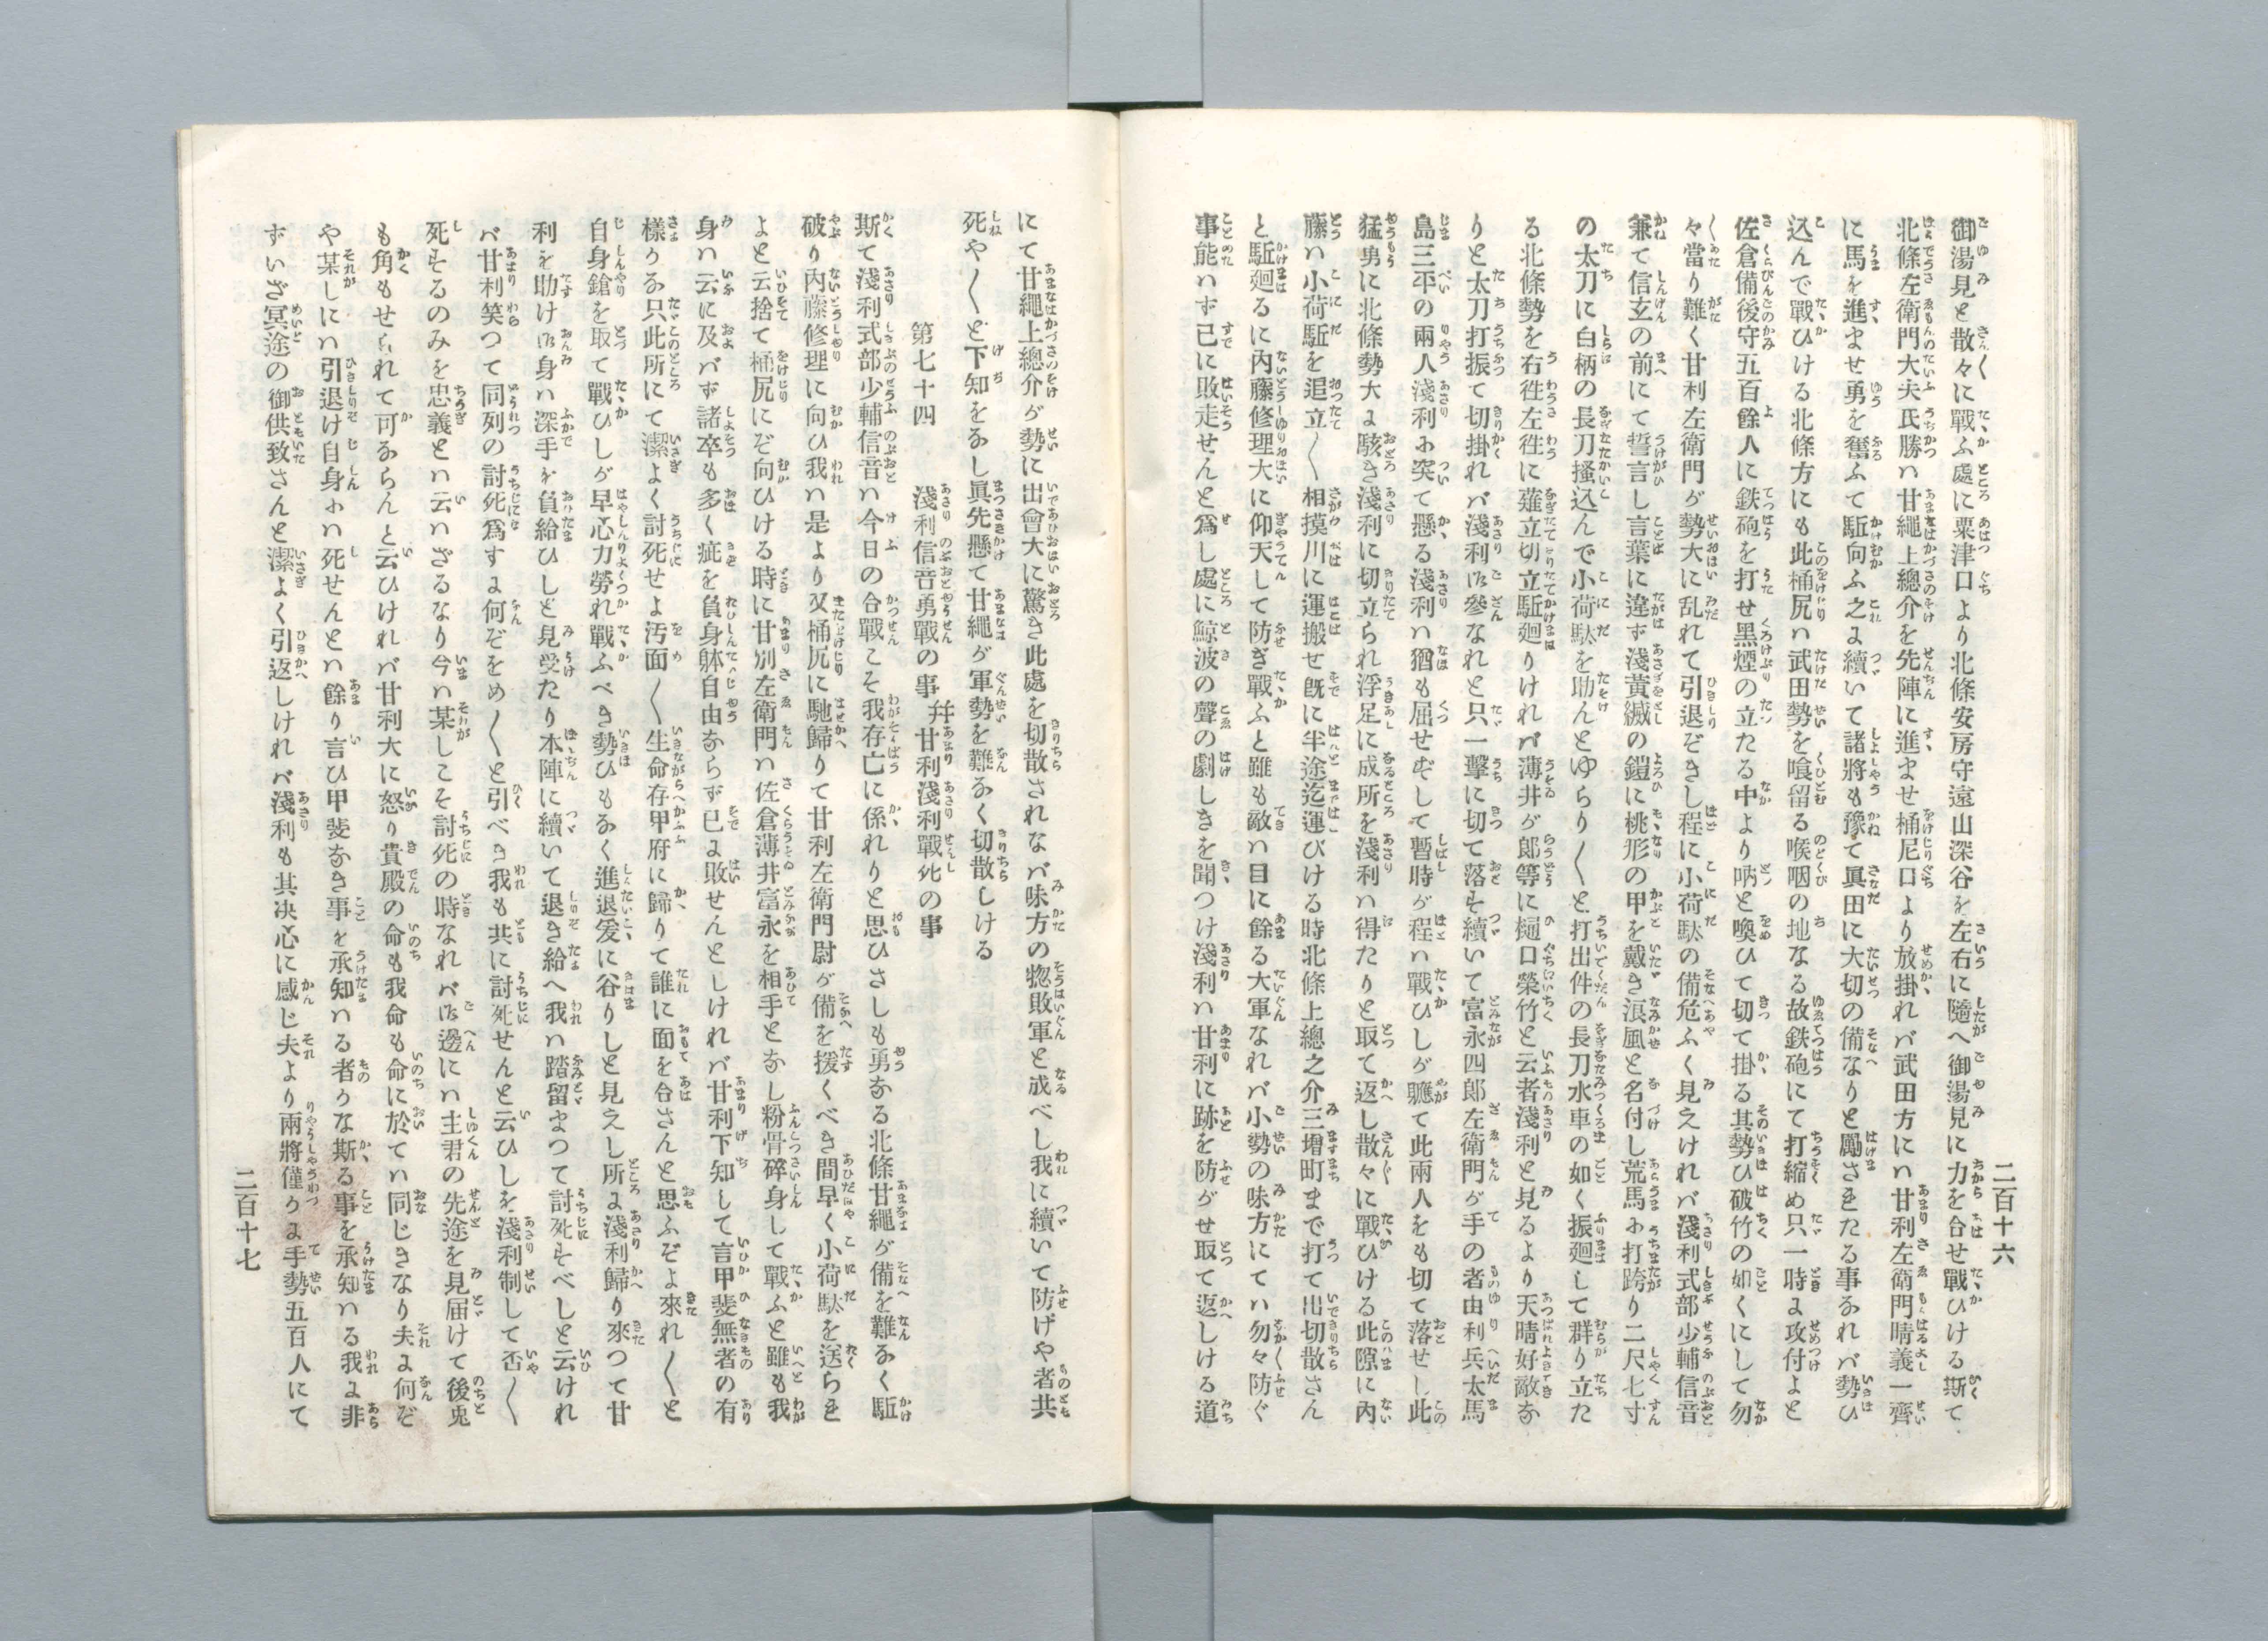 二百十六
御湯見と散々に戰ふ處に粟津口より北條安房守遠山深谷を左右に隨へ御湯見に力を合せ戰ひける斯て
北條左衛門大夫氏勝ハ甘繩上總介を先陣に進ませ桶尻口より放掛れバ武田方にハ甘利左衛門晴義一齊
に馬を進ませ勇を奮ふて駈向ふ之に續いて諸將も豫て眞田に大切の備なりと勵されたる事なれバ勢ひ
込んで戰ひける北條方にも此桶尻ハ武田勢を喰留る喉咽の地なる故鉄砲にて打縮め只一時に攻付よと
佐倉備後守五百餘人に鉄砲を打せ黒煙の立たる中より吶と喚ひて切て掛る其勢ひ破竹の如くにして勿
々當り難く甘利左衛門が勢大に乱れて引退ぞきし程に小荷駄の備危ふく見えけれバ淺利式部少輔信音
兼て信玄の前にて誓言し言葉に違ず淺黄縅の鎧に桃形の甲を戴き浪風と名付し荒馬に打跨り二尺七寸
の太刀に白柄の長刀搔込んで小荷駄を助んとゆらり〱と打出件の長刀水車の如く振廻して群り立た
る北條勢を右徃左徃に薙立切立駈廻りけれバ薄井が郎等に樋口榮竹と云者淺利と見るより天晴好敵な
りと太刀打振て切掛れバ淺利御參なれと只一擊に切て落す續いて富永四郎左衛門が手の者由利兵太馬
島三平の兩人淺利に突て懸る淺利ハ猶も屈せずして暫時が程ハ戰ひしが軈て此兩人をも切て落せし此
猛男に北條勢大に駭き淺利に切立られ浮足に成所を淺利ハ得たりと取て返し散々に戰ひける此隙に內
藤ハ小荷駈を追立〱相摸川に運搬せ既に半途迄運びける時北條上總之介三增町まで打て出切散さん
と駈廻るに內藤修理大に仰天して防ぎ戰ふと雖も敵ハ目に餘る大軍なれバ小勢の味方にてハ勿々防ぐ
事能ハず已に敗走せんと爲し處に鯨波の聲の劇しきを聞つけ淺利ハ甘利に跡を防がせ取て返しける道
にて甘繩上總介が勢に出會大に驚き此處を切散されなバ味方の惣敗軍と成べし我に續いて防げや者共
死や〱と下知をなし眞先懸て甘繩が軍勢を難なく切散しける
第七十四　淺利信音勇戰の事幷甘利淺利戰死の事
斯て淺利式部少輔信音ハ今日の合戰こそ我存亡に係れりと思ひさしも勇なる北條甘繩が備を難なく駈
破り內藤修理に向ひ我ハ是より又桶尻に馳歸りて甘利左衛門尉が備を援くべき間早く小荷駄を送られ
よと云捨て桶尻にぞ向ひける時に甘別左衛門ハ佐倉薄井富永を相手となし粉骨碎身して戰ふと雖も我
身ハ云に及バず諸卒も多く疵を負身躰自由ならず已に敗せんとしけれバ甘利下知して言甲斐無者の有
樣かな只此所にて潔よく討死せよ汚面〱生命存甲府に歸りて誰に面を合さんと思ふぞよ來れ〱と
自身鎗を取て戰ひしが早心力勞れ戰ふべき勢ひもなく進退爰に谷りしと見えし所に淺利歸り來つて甘
利を助け御身ハ深手を負給ひしと見受たり本陣に續いて退き給へ我ハ踏留まつて討死すべしと云けれ
バ甘利笑つて同列の討死爲すに何ぞをめ〱と引べき我も共に討死せんと云ひしを淺利制して否〱
死するのみを忠義とハ云ハざるなり今ハ某しこそ討死の時なれバ御邊にハ主君の先途を見届けて後兎
も角もせられて可ならんと云ひけれバ甘利大に怒り貴殿の命も我命も命に於てハ同じきなり夫に何ぞ
や某しにハ引退け自身ハ死せんとハ餘り言ひ甲斐なき事を承知ハる者かな斯る事を承知ハる我に非
ずいざ冥途の御供致さんと潔よく引返しけれバ淺利も其决心に感じ夫より兩將僅かに手勢五百人にて
二百十七